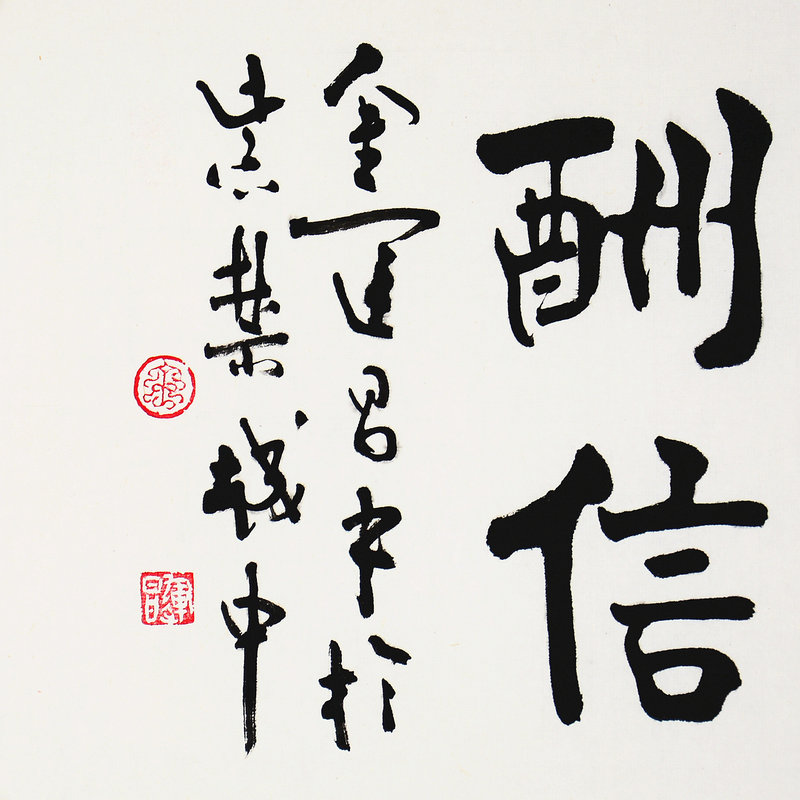 酬信
金運昌书於
紫禁城中